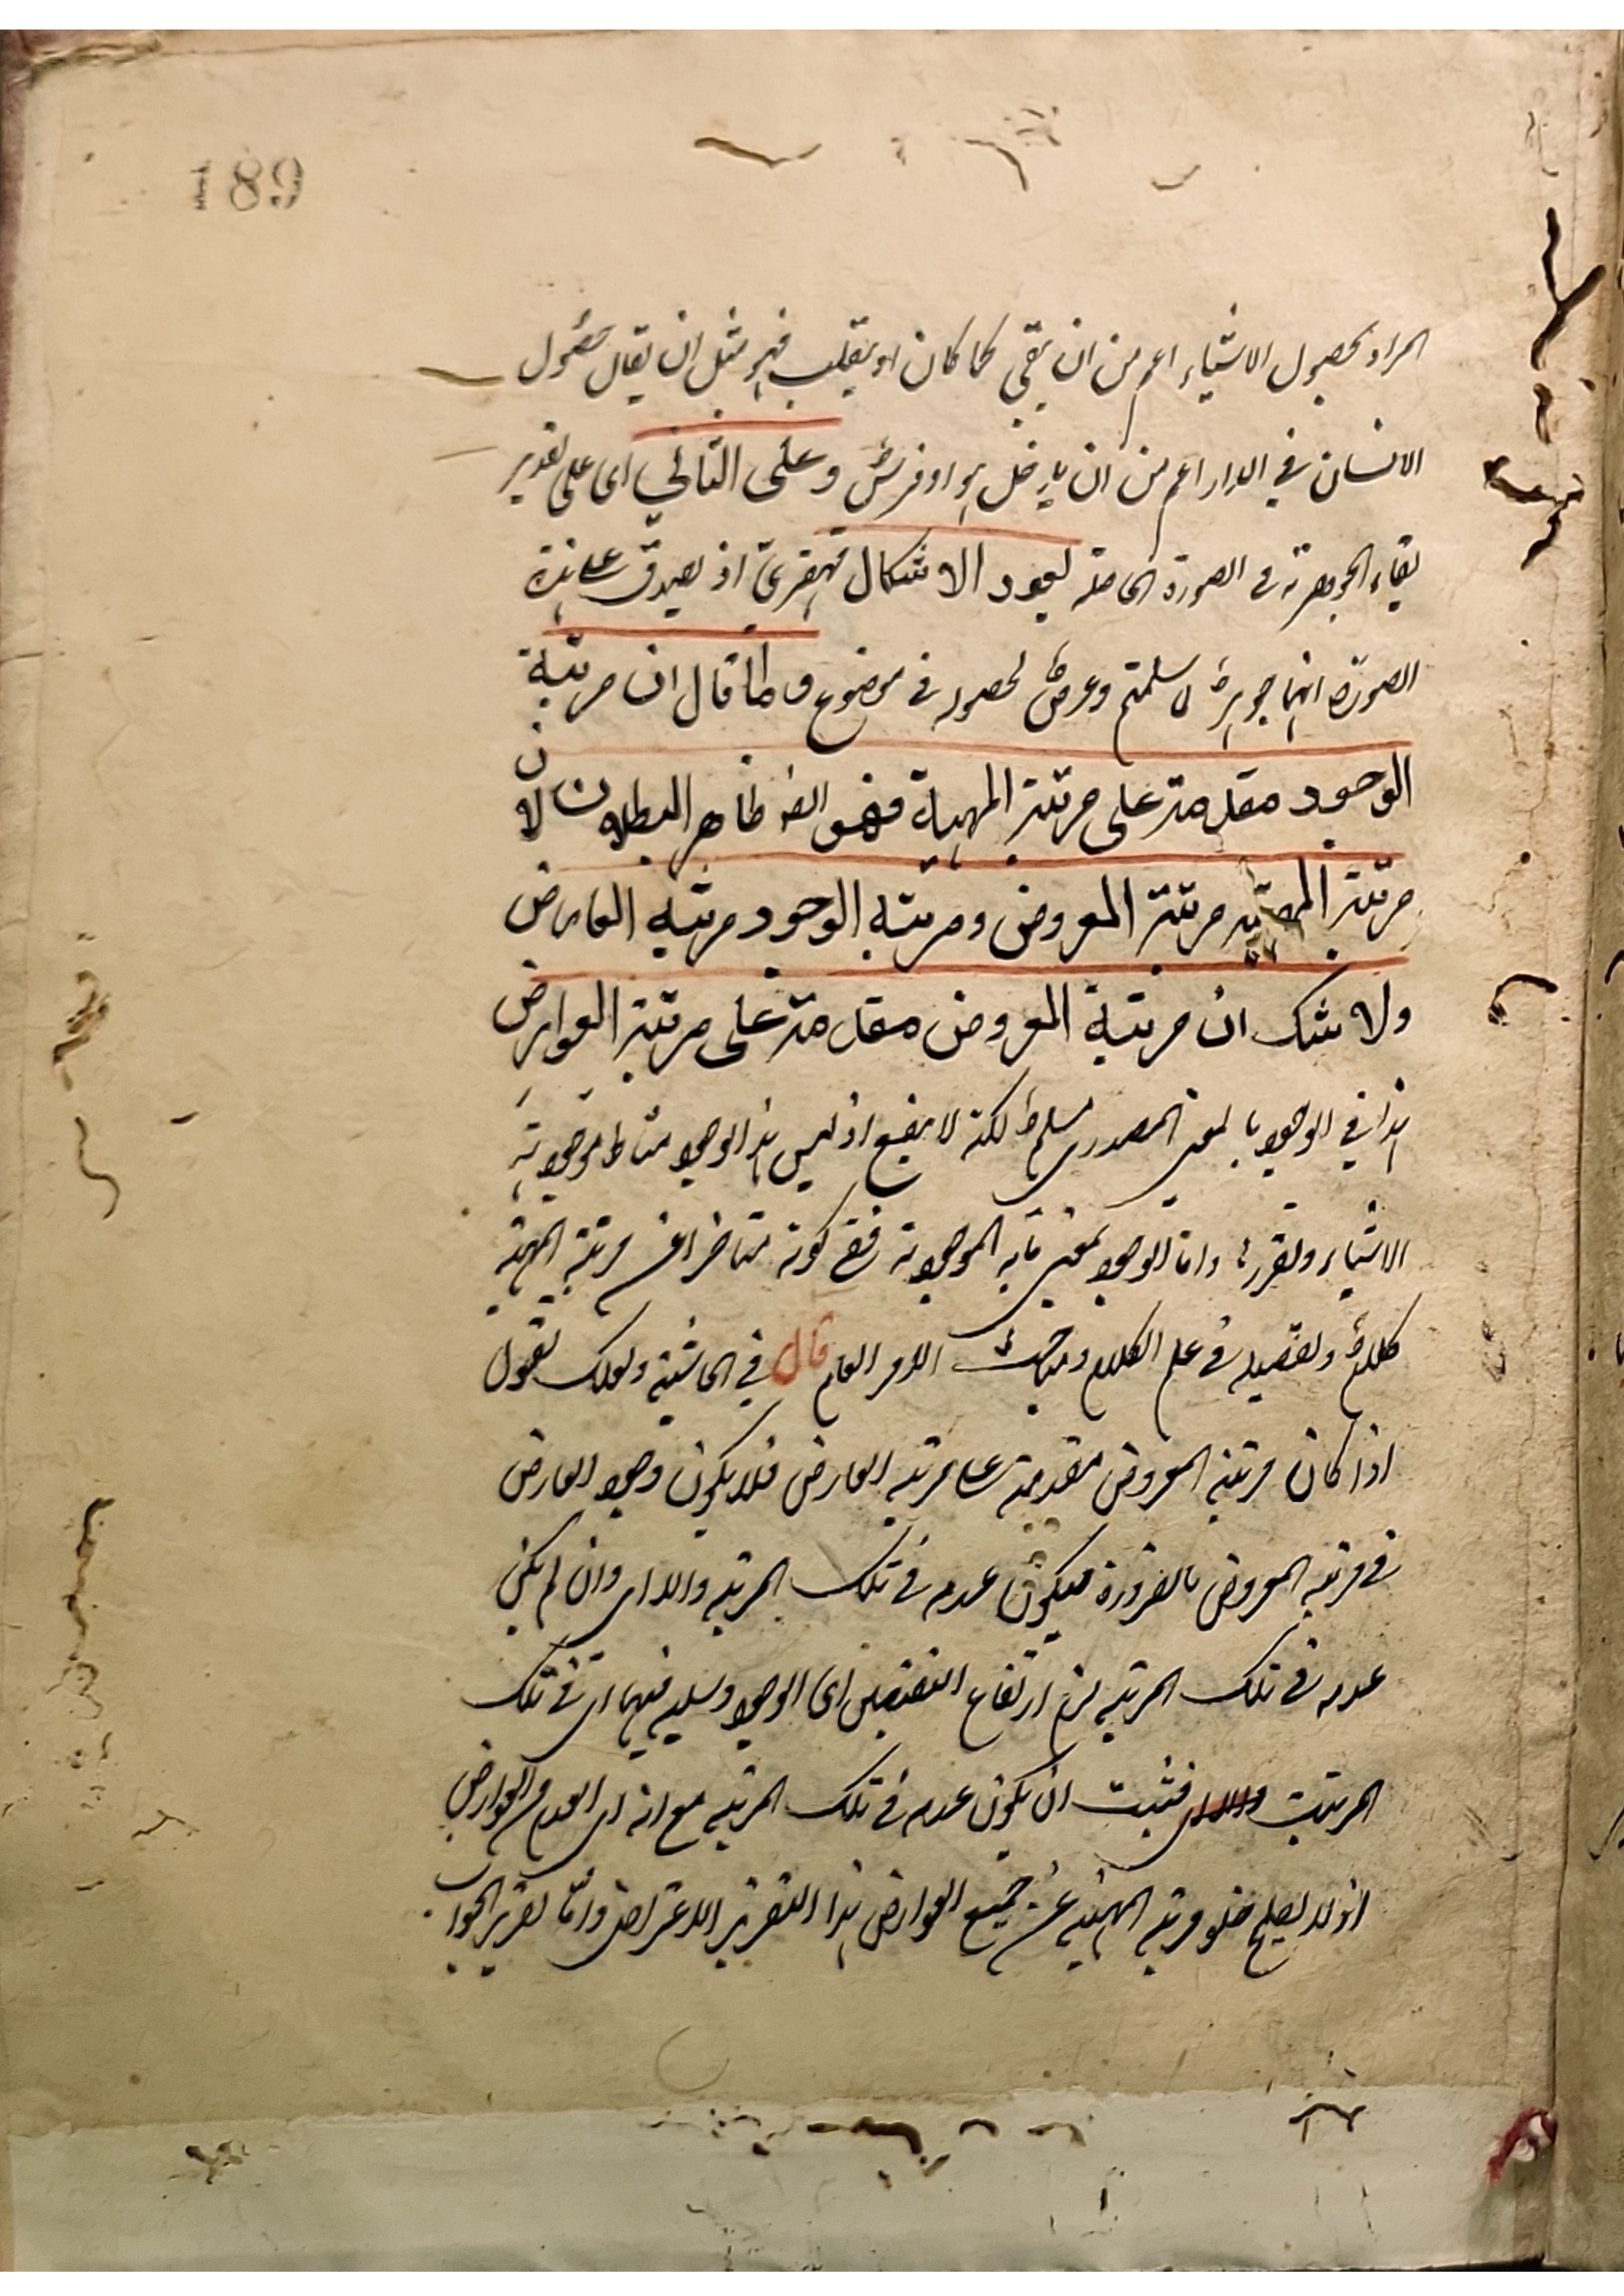 189
المراد بحصول الاشياء اعم من ان يبقى كما كان او ينقلب فهو مثل ان يقال حصول
الانسان في الدار اعم من ان يدخل هو او فرسٌ وعلى الثاني اى على تقدير
بقاء الجوهرية في الصورة الحاصلة يعود الاشكال قهقرىً اذ يصدق على هذه
الصورة انها جوهرٌ لا سلمتم وعرضٌ لحصوله في موضوع وما قال ان مرتبة
الوجود مقدمة على مرتبة المهية فهو ايضا ظاهر البطلان لان
مرتبة المهية مرتبة المعروض ومرتبة الوجود مرتبة العارض
ولا شك ان مرتبة المعروض مقدمة على مرتبة العوارض
هذا في الوجود بالمعنى المصدرى مسلم لكنه لا ينفع اذ ليس هذا الوجود مناط موجودية
الاشياء وتقررها واما الوجود بمعنى ما به الموجودية ففى كونه متاخرا عن مرتبة المهية
كلامٌ وتفصيله في علم الكلام ومباحث الامر العام قال في الحاشية ولعلك تقول
اذا كان مرتبة المعروض مقدمة على مرتبة العارض فلا يكون وجود العارض
في مرتبة المعروض بالضرورة فيكون عدمه في تلك المرتبة والا اى وان لم يكن
عدمه في تلك المرتبة لزم ارتفاع النقيضين اى الوجود وسلبه فيها اى في تلك
المرتبة فثبت ان يكون عدمه في تلك المرتبة مع انه اى العدم من العوارض
اذ لا يصلح خلو مرتبة المهية عن جميع العوارض هذا التقرير الاعتراض واما تقرير الجواب